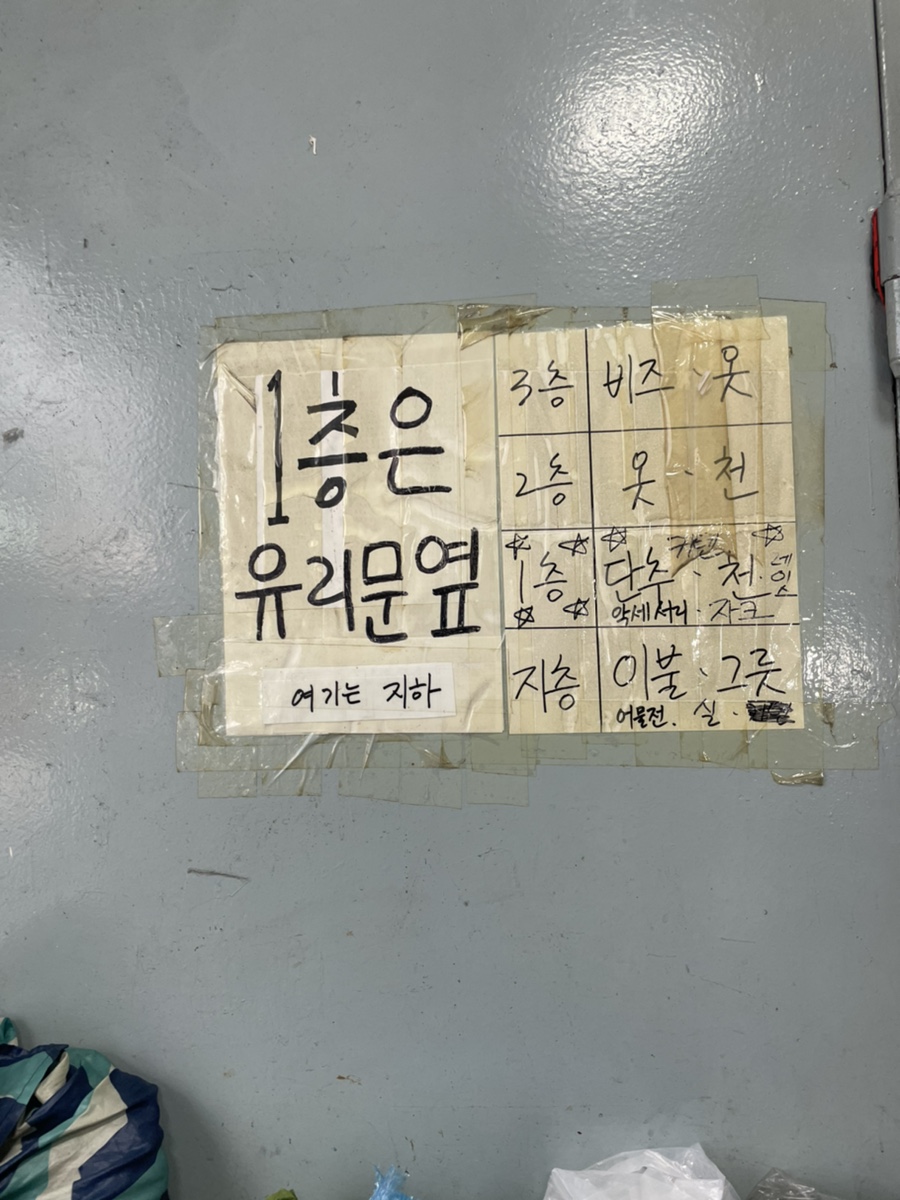 1층은
유리문옆
여기는 지하
3층 비즈 · 옷
2층 옷 · 천
1층 단추 · 천 · 레이스
악세서리 · 자크
지층 이불 · 그릇
어물전 · 실 ·